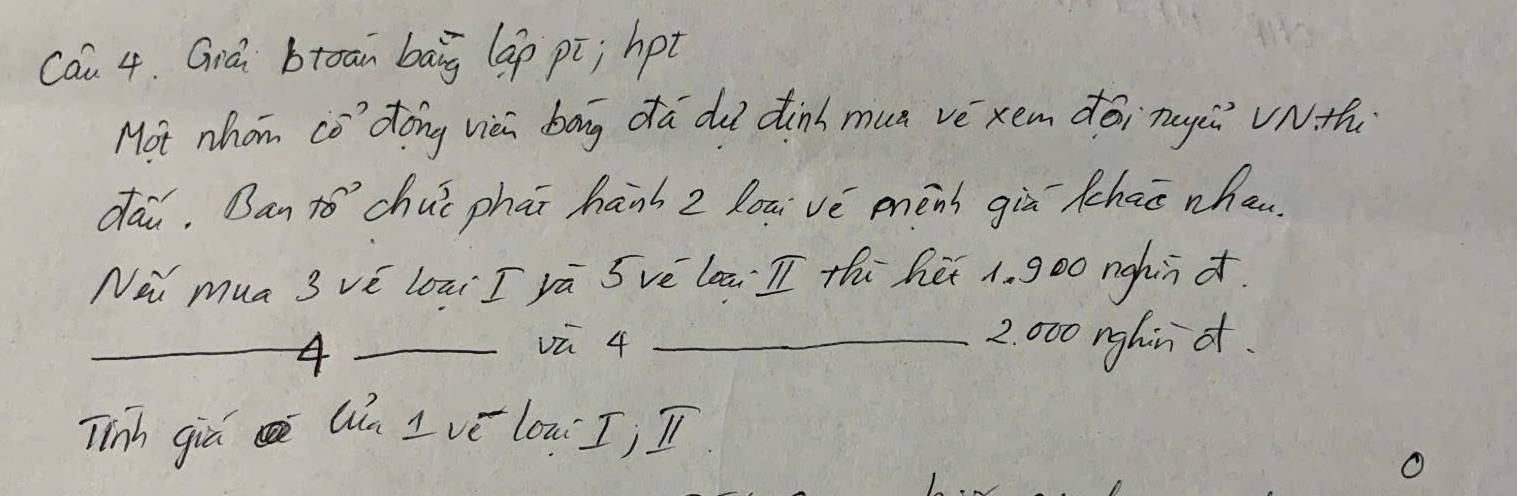 Câu 4. Giải btoán bằng lập pt; hpt
Một nhóm cổ động viên bóng đá dự định mua vé xem đội tuyển VN thi
đấu. Ban tổ chức phát hành 2 loại vé mệnh giá khác nhau.
Nếu mua 3 vé loại I và 5 vé loại II thì hết 1.900 nghìn đ.
——— 4 ——— và 4 ——— 2.000 nghìn đ.
Tính giá của 1 vé loại I; II.